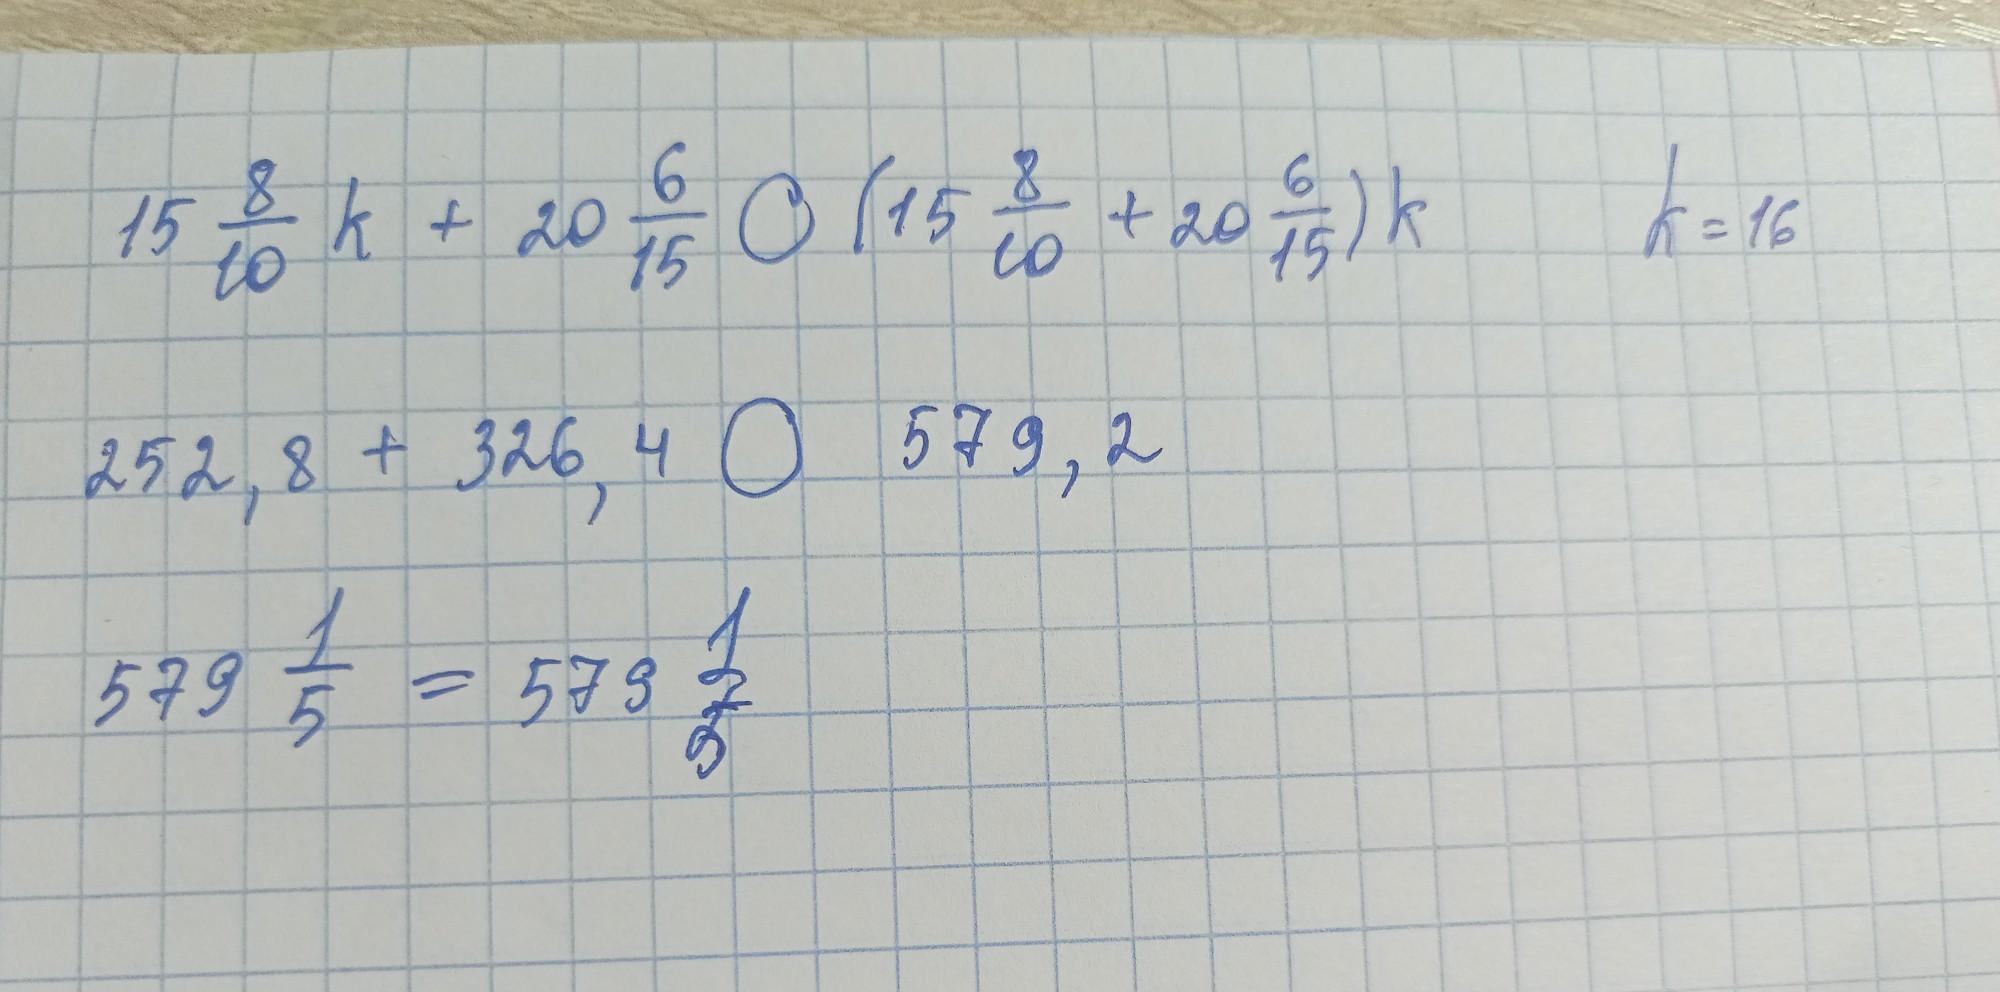 15 8/10 k + 20 6/15 ◯ (15 8/10 + 20 6/15) k k = 16
252,8 + 326,4 ◯ 579,2
579 1/5 = 579 1/5